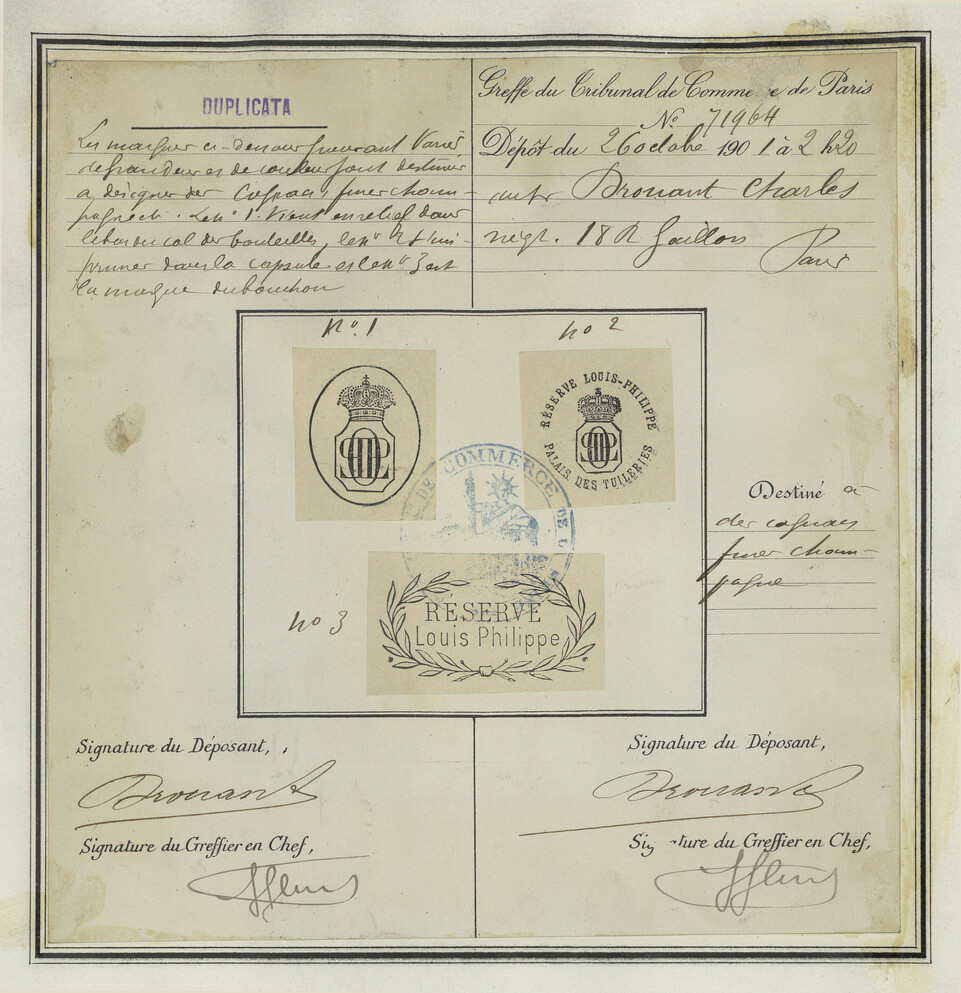 DUPLICATA
Les marques ci-dessous pouvant varier
de grandeur et de couleur sont destinées
à désigner des Cognacs, finer cham-
pagne etc. Le no 1 vient en relief dans
le bas du col des bouteilles, le no 2 s'im-
primer dans la capsule et le no 3 est
la marque du bouchon
Greffe du Tribunal de Comme e de Paris
No 71964
Dépôt du 26 octobre 1901 à 2 h20
Drouant Charles
négt. 18 R Gaillon
Paris
no. 1
no 2
RÉSERVE LOUIS-PHILIPPE
PALAIS DES TUILERIES
DE COMMERCE DE L
Destiné à
des cognacs
finer cham-
pagne
no 3
RÉSERVE
Louis Philippe
Signature du Déposant,
Drouant
Signature du Greffier en Chef,
Signature du Déposant,
Drouant
Sig ture du Greffier en Chef,